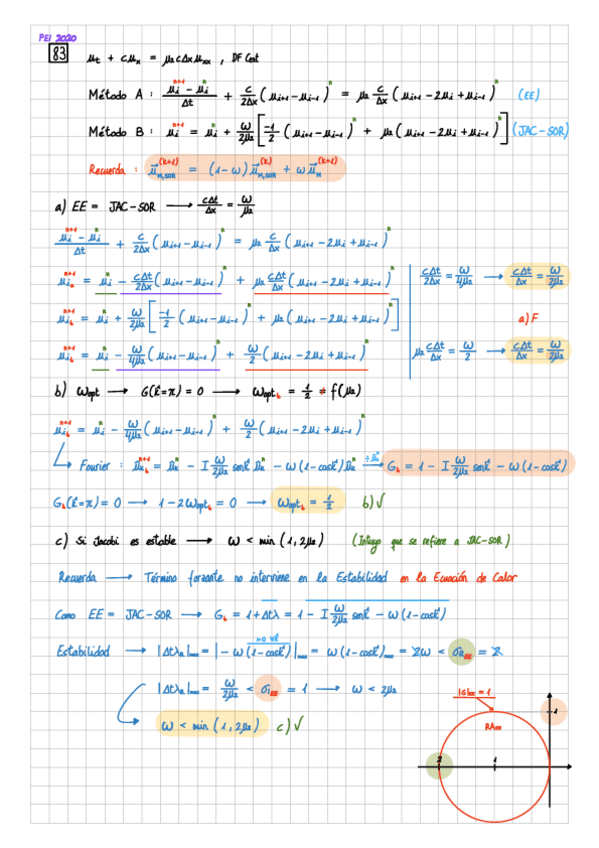 PEI 2020
83 μt + cμx = μ2cΔxμxx , DF Cent
Método A : (μi^{n+1} - μi^n)/Δt + c/2Δx (μi+1 - μi-1)^n = μ2 c/Δx (μi+1 - 2μi + μi-1)^n (EE)
Método B : μi^{n+1} = μi^n + ω/2μ2 [ -1/2 (μi+1 - μi-1)^n + μ2(μi+1 - 2μi + μi-1)^n ] (JAC-SOR)
Recuerda : μ⃗_{M,SOR}^{(k+1)} = (1-ω)μ⃗_{M,SOR}^{(k)} + ωμ⃗_M^{(k+1)}
a) EE = JAC-SOR → cΔt/Δx = ω/μ2
(μi^{n+1} - μi^n)/Δt + c/2Δx (μi+1 - μi-1)^n = μ2 c/Δx (μi+1 - 2μi + μi-1)^n
μi_a^{n+1} = μi^n - cΔt/2Δx (μi+1 - μi-1)^n + μ2 cΔt/Δx (μi+1 - 2μi + μi-1)^n
cΔt/2Δx = ω/4μ2 → cΔt/Δx = ω/2μ2
μi_b^{n+1} = μi^n + ω/2μ2 [ -1/2 (μi+1 - μi-1)^n + μ2(μi+1 - 2μi + μi-1)^n ]
a) F
μi_b^{n+1} = μi^n - ω/4μ2 (μi+1 - μi-1)^n + ω/2 (μi+1 - 2μi + μi-1)^n
μ2 cΔt/Δx = ω/2 → cΔt/Δx = ω/2μ2
b) ωopt → G(k̂=π) = 0 → ωopt_b = 1/2 ≠ f(μ2)
μi_b^{n+1} = μi^n - ω/4μ2 (μi+1 - μi-1)^n + ω/2 (μi+1 - 2μi + μi-1)^n
Fourier : û_{k b}^{n+1} = û_k^n - I ω/2μ2 senk̂ û_k^n - ω(1-cosk̂)û_k^n →(÷ û_k^n) G_b = 1 - I ω/2μ2 senk̂ - ω(1-cosk̂)
G_b(k̂=π) = 0 → 1 - 2ωopt_b = 0 → ωopt_b = 1/2 b)√
c) Si Jacobi es estable → ω < min (1, 2μ2) (Intuyo que se refiere a JAC-SOR)
Recuerda → Término forzante no interviene en la Estabilidad en la Ecuación de Calor
Como EE = JAC-SOR → G_b = 1 + Δtλ = 1 - I ω/2μ2 senk̂ - ω(1-cosk̂)
Estabilidad → |Δtλ_R|max = |- ω(1-cosk̂)|max = ω(1-cosk̂)max = 2ω < σ_{R EE} = 2
>0 ∀k̂
|Δtλ_I|max = ω/2μ2 < σ_{I EE} = 1 → ω < 2μ2
ω < min (1, 2μ2) c)√
|G|EE = 1
1
RAEE
2
1